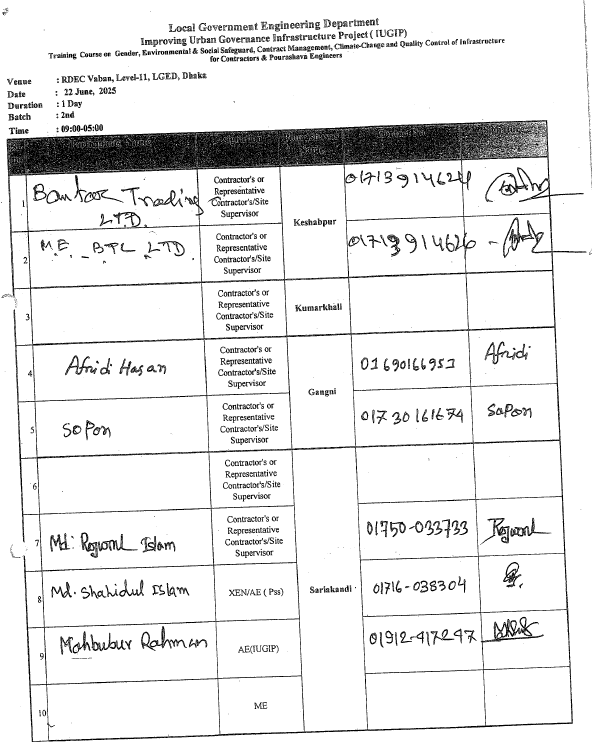 Local Government Engineering Department
Improving Urban Governance Infrastructure Project ( IUGIP)
Training Course on Gender, Environmental & Social Safeguard, Contract Management, Climate-Change and Quality Control of Infrastructure
for Contractors & Pourashava Engineers
Venue : RDEC Vaban, Level-11, LGED, Dhaka
Date : 22 June, 2025
Duration : 1 Day
Batch : 2nd
Time : 09:00-05:00
1 Trading LTD. Contractor's or Representative Contractor's/Site Supervisor Keshabpur 01713914624
2 M.E. BPL LTD. Contractor's or Representative Contractor's/Site Supervisor 01713914626
3 Contractor's or Representative Contractor's/Site Supervisor Kumarkhali
4 Afridi Hasan Contractor's or Representative Contractor's/Site Supervisor Gangni 01690166951 Afridi
5 Sopon Contractor's or Representative Contractor's/Site Supervisor 01730161674 Sapon
6 Contractor's or Representative Contractor's/Site Supervisor
7 Md: Islam Contractor's or Representative Contractor's/Site Supervisor Sariakandi 01750-033733
8 Md. Shahidul Islam XEN/AE ( Pss) 01716-038304
9 Mahbubur Rahman AE(IUGIP) 01912-417247
10 ME